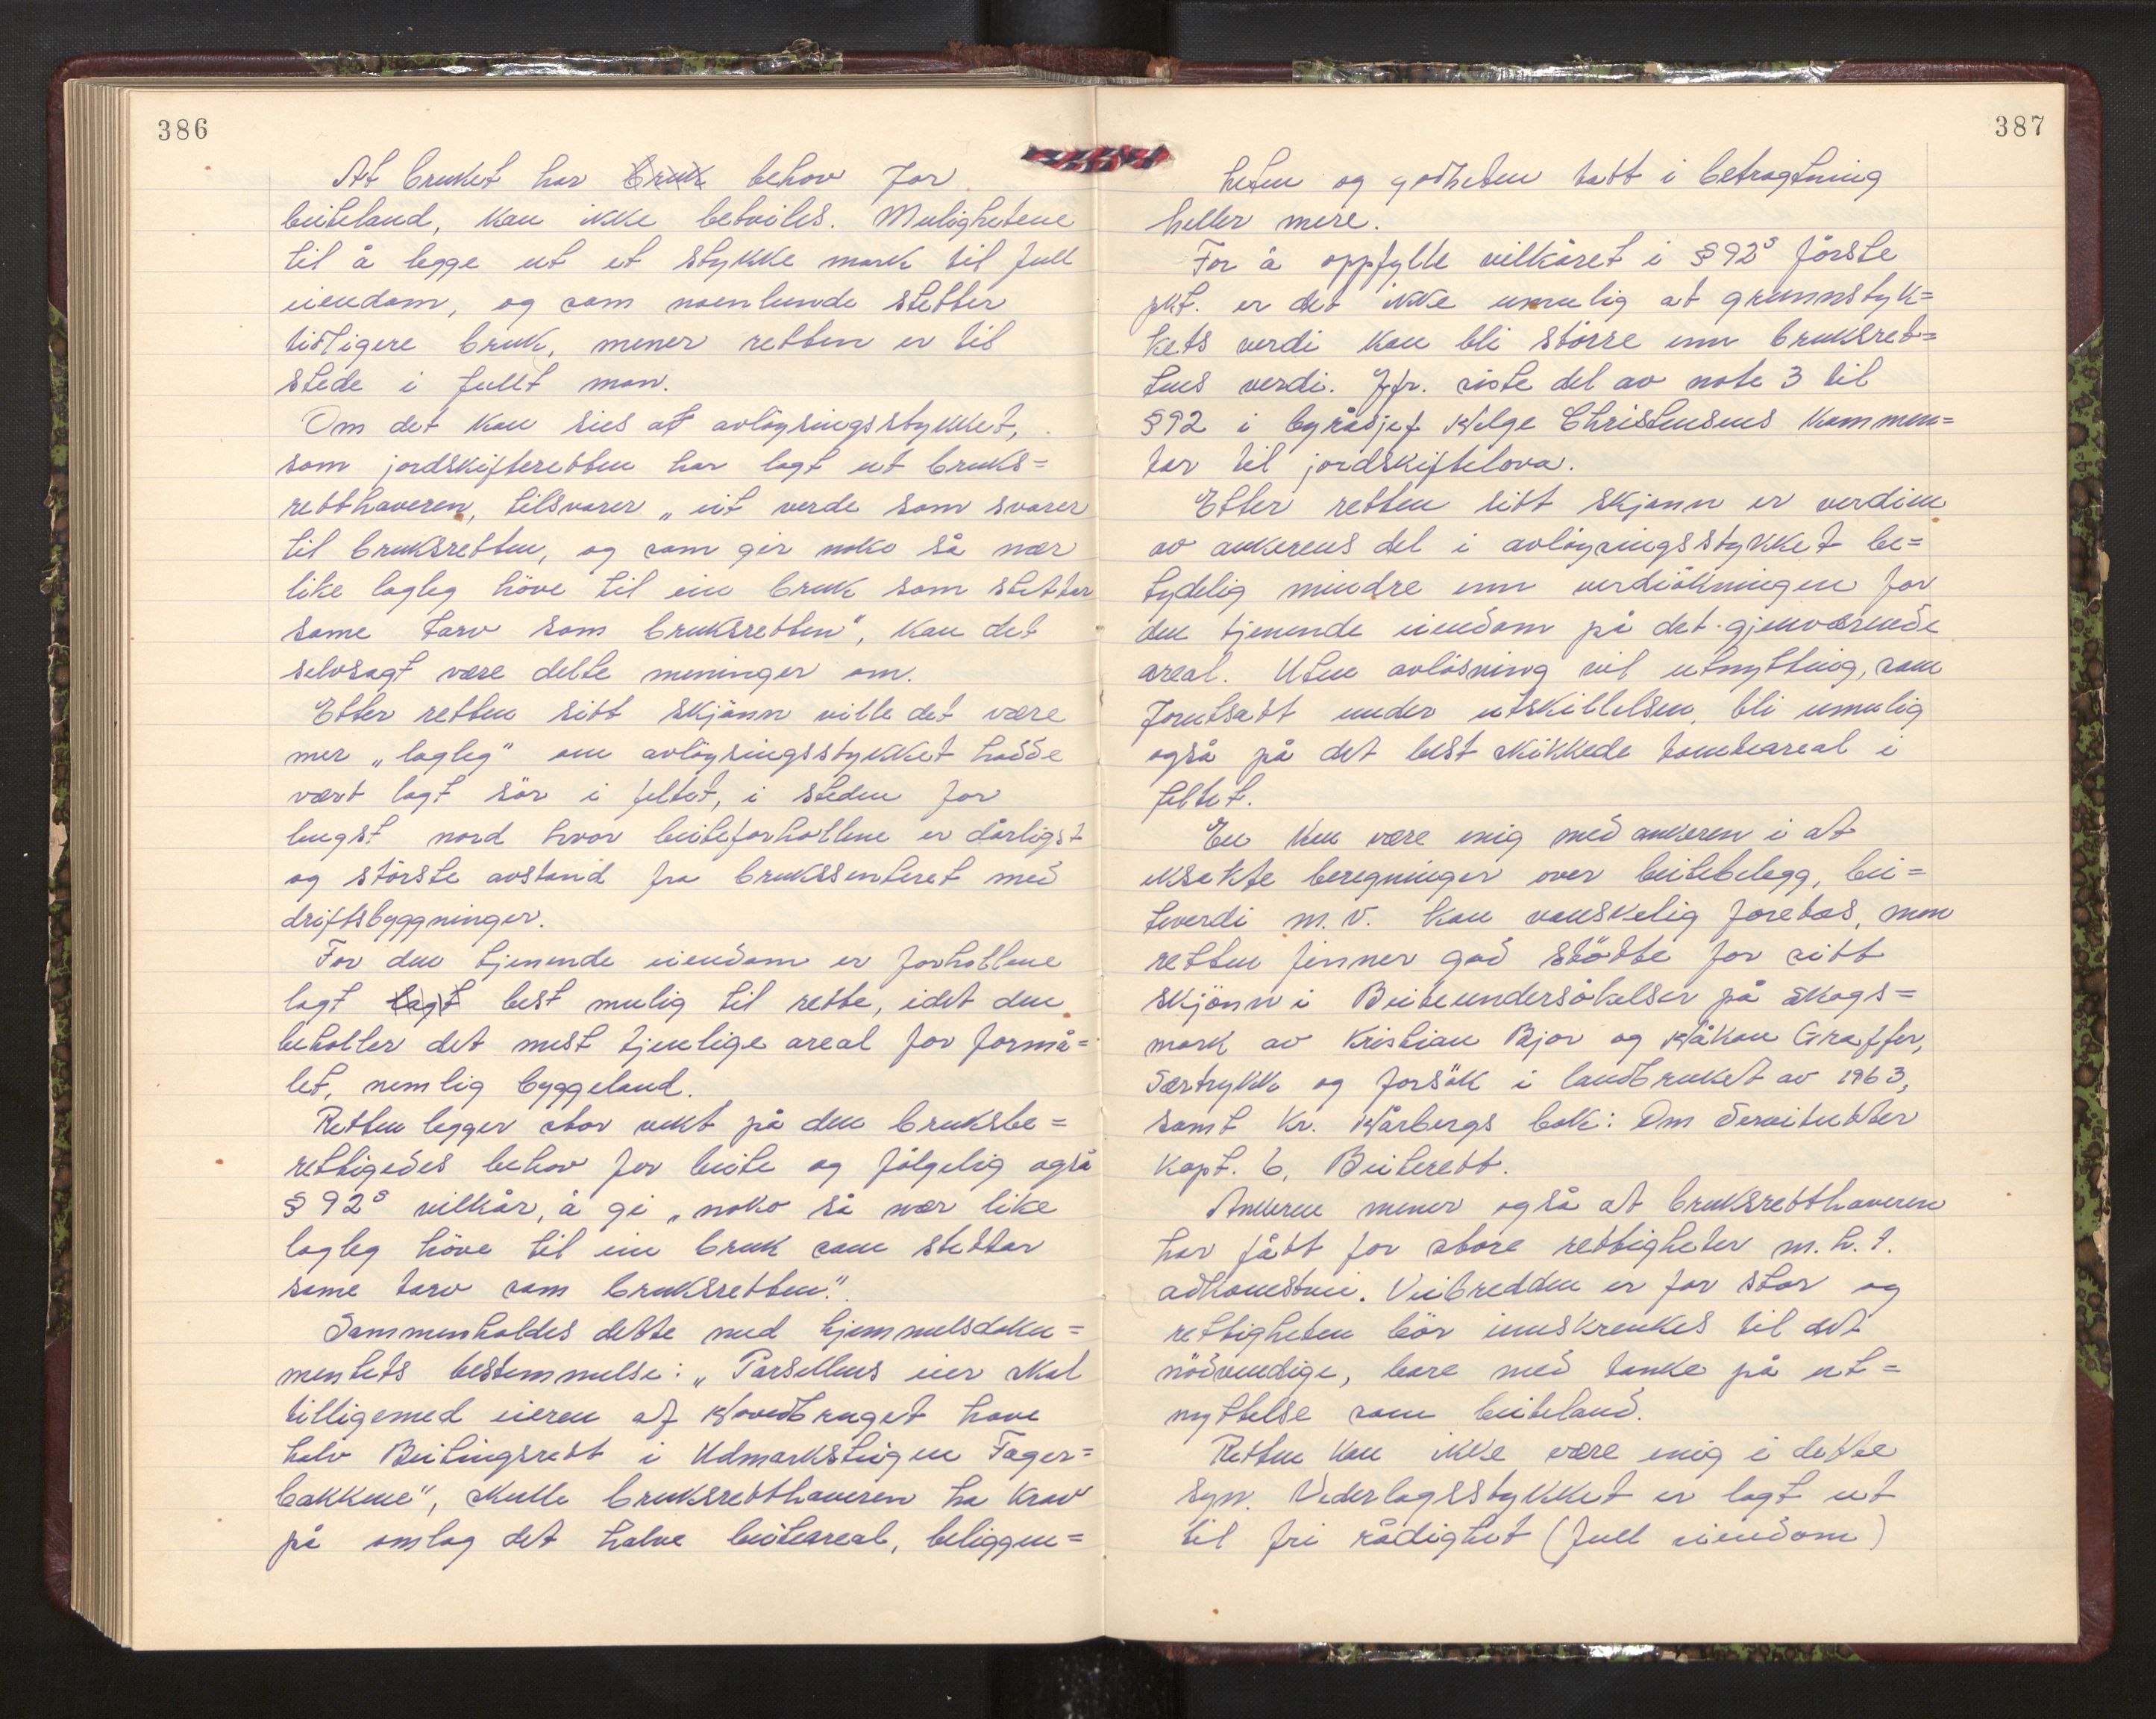 386
At bruket har bruk behov for
beiteland, kan ikke betviles. Mulighetene
til å legge ut et stykke mark til full
eiendom, og som noenlunde stetter
tidligere bruk, mener retten er til
stede i fullt mon.
Om det kan sies at avløysingsstykket,
som jordskifteretten har lagt ut bruks=
retthaveren, tilsvarer „eit verde som svarer
til bruksretten, og som gir noko så nær
like lagleg höve til ein bruk som stettar
same tarv som bruksretten", kan det
selvsagt være delte meninger om.
Etter retten sitt skjönn ville det være
mer „lagleg" om avløysingsstykket hadde
vært lagt sör i feltet, i steden for
lengst nord hvor beiteforholdene er dårligst
og störste avstand fra brukssenteret med
driftsbyggninger.
For den tjenende eiendom er forholdene
lagt lagt best mulig til rette, idet den
beholder det mest tjenlige areal for formå=
let, nemlig byggeland.
Retten legger stor vekt på den bruksbe=
rettigedes behov for beite og fölgelig også
§ 92⁵ vilkår, å gi „noko så nær like
lagleg höve til ein bruk som stettar
same tarv som bruksretten".
Sammenholdes dette med hjemmelsdoku=
mentets bestemmelse: „Parsellens eier skal
tilligemed eieren af Hovedbruget have
halv Beitingsrett i Udmarksteigen Fager=
bakkene", skulle bruksretthaveren ha krav
på omlag det halve beiteareal, beliggen=
387
heten og godheten tatt i betragtning
heller mere.
For å oppfylle vilkåret i § 92⁵ förste
pkt. er det ikke umulig at grunnstyk=
kets verdi kan bli större enn bruksret=
tens verdi. Jfr. siste del av note 3 til
§ 92 i byråsjef Helge Christensens kommen=
tar til jordskiftelova.
Etter retten sitt skjønn er verdien
av ankerens del i avløysingsstykket be=
tydelig mindre enn verdiökningen for
den tjenende eiendom på det gjenværende
areal. Uten avlösning vil utnytting, som
forutsatt under utskillelsen, bli umulig
også på det best skikkede tomteareal i
feltet.
En kan være enig med ankeren i at
eksakte beregninger over beitebelegg, bei=
teverdi m.v. kan vanskelig foretas, men
retten finner god stötte for sitt
skjönn i Beiteundersökelser på skogs=
mark av Kristian Bjor og Håkon Graffer,
Særtrykk og forsök i landbruket av 1963,
samt Kr. Hårbergs bok: Om Servitutter
Kapt. 6, Beiterett.
Ankeren mener også at bruksretthaveren
har fått for store rettigheter m.h.t.
adkomstvei. Veibredden er for stor og
rettigheten bör innskrenkes til det
nödvendige, bare med tanke på ut=
nyttelse som beiteland.
Retten kan ikke være enig i dette
syn. Vederlagsstykket er lagt ut
til fri rådighet (full eiendom)